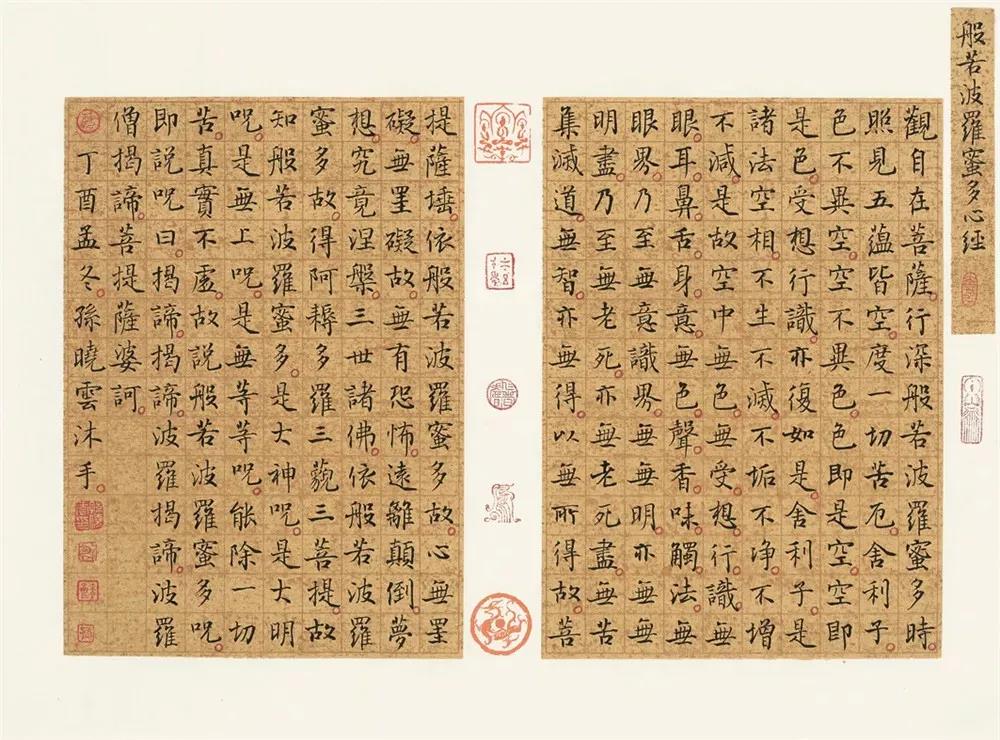 般若波羅蜜多心經
觀自在菩薩行深般若波羅蜜多時
照見五蘊皆空度一切苦厄舍利子
色不異空空不異色色即是空空即
是色受想行識亦復如是舍利子是
諸法空相不生不滅不垢不净不增
不減是故空中無色無受想行識無
眼耳鼻舌身意無色聲香味觸法無
眼界乃至無意識界無無明亦無無
明盡乃至無老死亦無老死盡無苦
集滅道無智亦無得以無所得故菩
提薩埵依般若波羅蜜多故心無罣
礙無罣礙故無有恐怖遠離顛倒夢
想究竟涅槃三世諸佛依般若波羅
蜜多故得阿耨多羅三藐三菩提故
知般若波羅蜜多是大神呪是大明
呪是無上呪是無等等呪能除一切
苦真實不虛故說般若波羅蜜多呪
即說呪曰揭諦揭諦波羅揭諦波羅
僧揭諦菩提薩婆訶
丁酉孟冬孫曉雲沐手